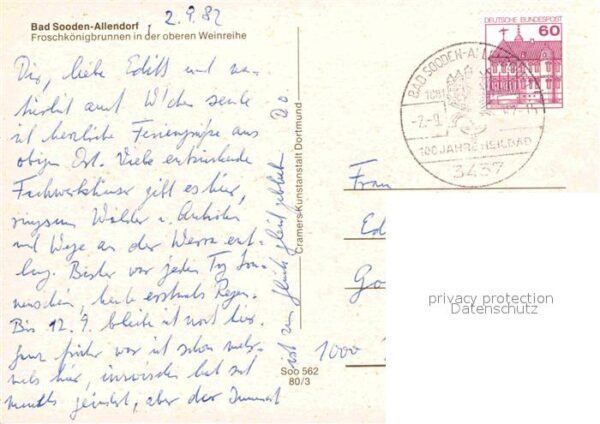 Bad Sooden-Allendorf
Froschkönigbrunnen in der oberen Weinreihe
2.9.82
Dir, liebe Edith und
W'chen sende
ich herzliche Feriengrüße aus
obigem Ort. Viele entzückende
Fachwerkhäuser gibt es hier,
ringsum Wälder u. Anhöhen
und Wege an der Werra ent-
lang. Bisher war jeden Tag Son-
nenschein, heute erstmals Regen.
Bis 12.9. bleibe ich noch hier.
Ganz früher war ich schon mehr-
mals hier, inzwischen hat sich
manches geändert, aber der
ist zum Glück gleich geblieben
Cramers-Kunstanstalt Dortmund
Soo 562
80/3
DEUTSCHE BUNDESPOST
60
BAD SOODEN-ALLENDORF
1881
-2.-9.
100 JAHRE HEILBAD
3437
Frau
Ed
Go
1000
privacy protection
Datenschutz